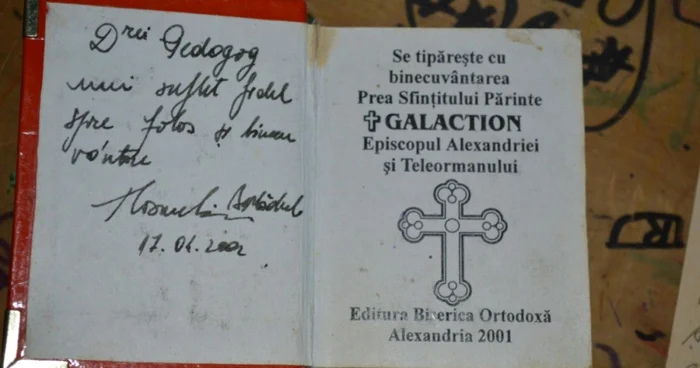 Drei Pedagog
unui suflet fidel
spre folos și binecu
vântare
17.01.2002
Se tipărește cu
binecuvântarea
Prea Sfințitului Părinte
✝ GALACTION
Episcopul Alexandriei
și Teleormanului
Editura Biserica Ortodoxă
Alexandria 2001